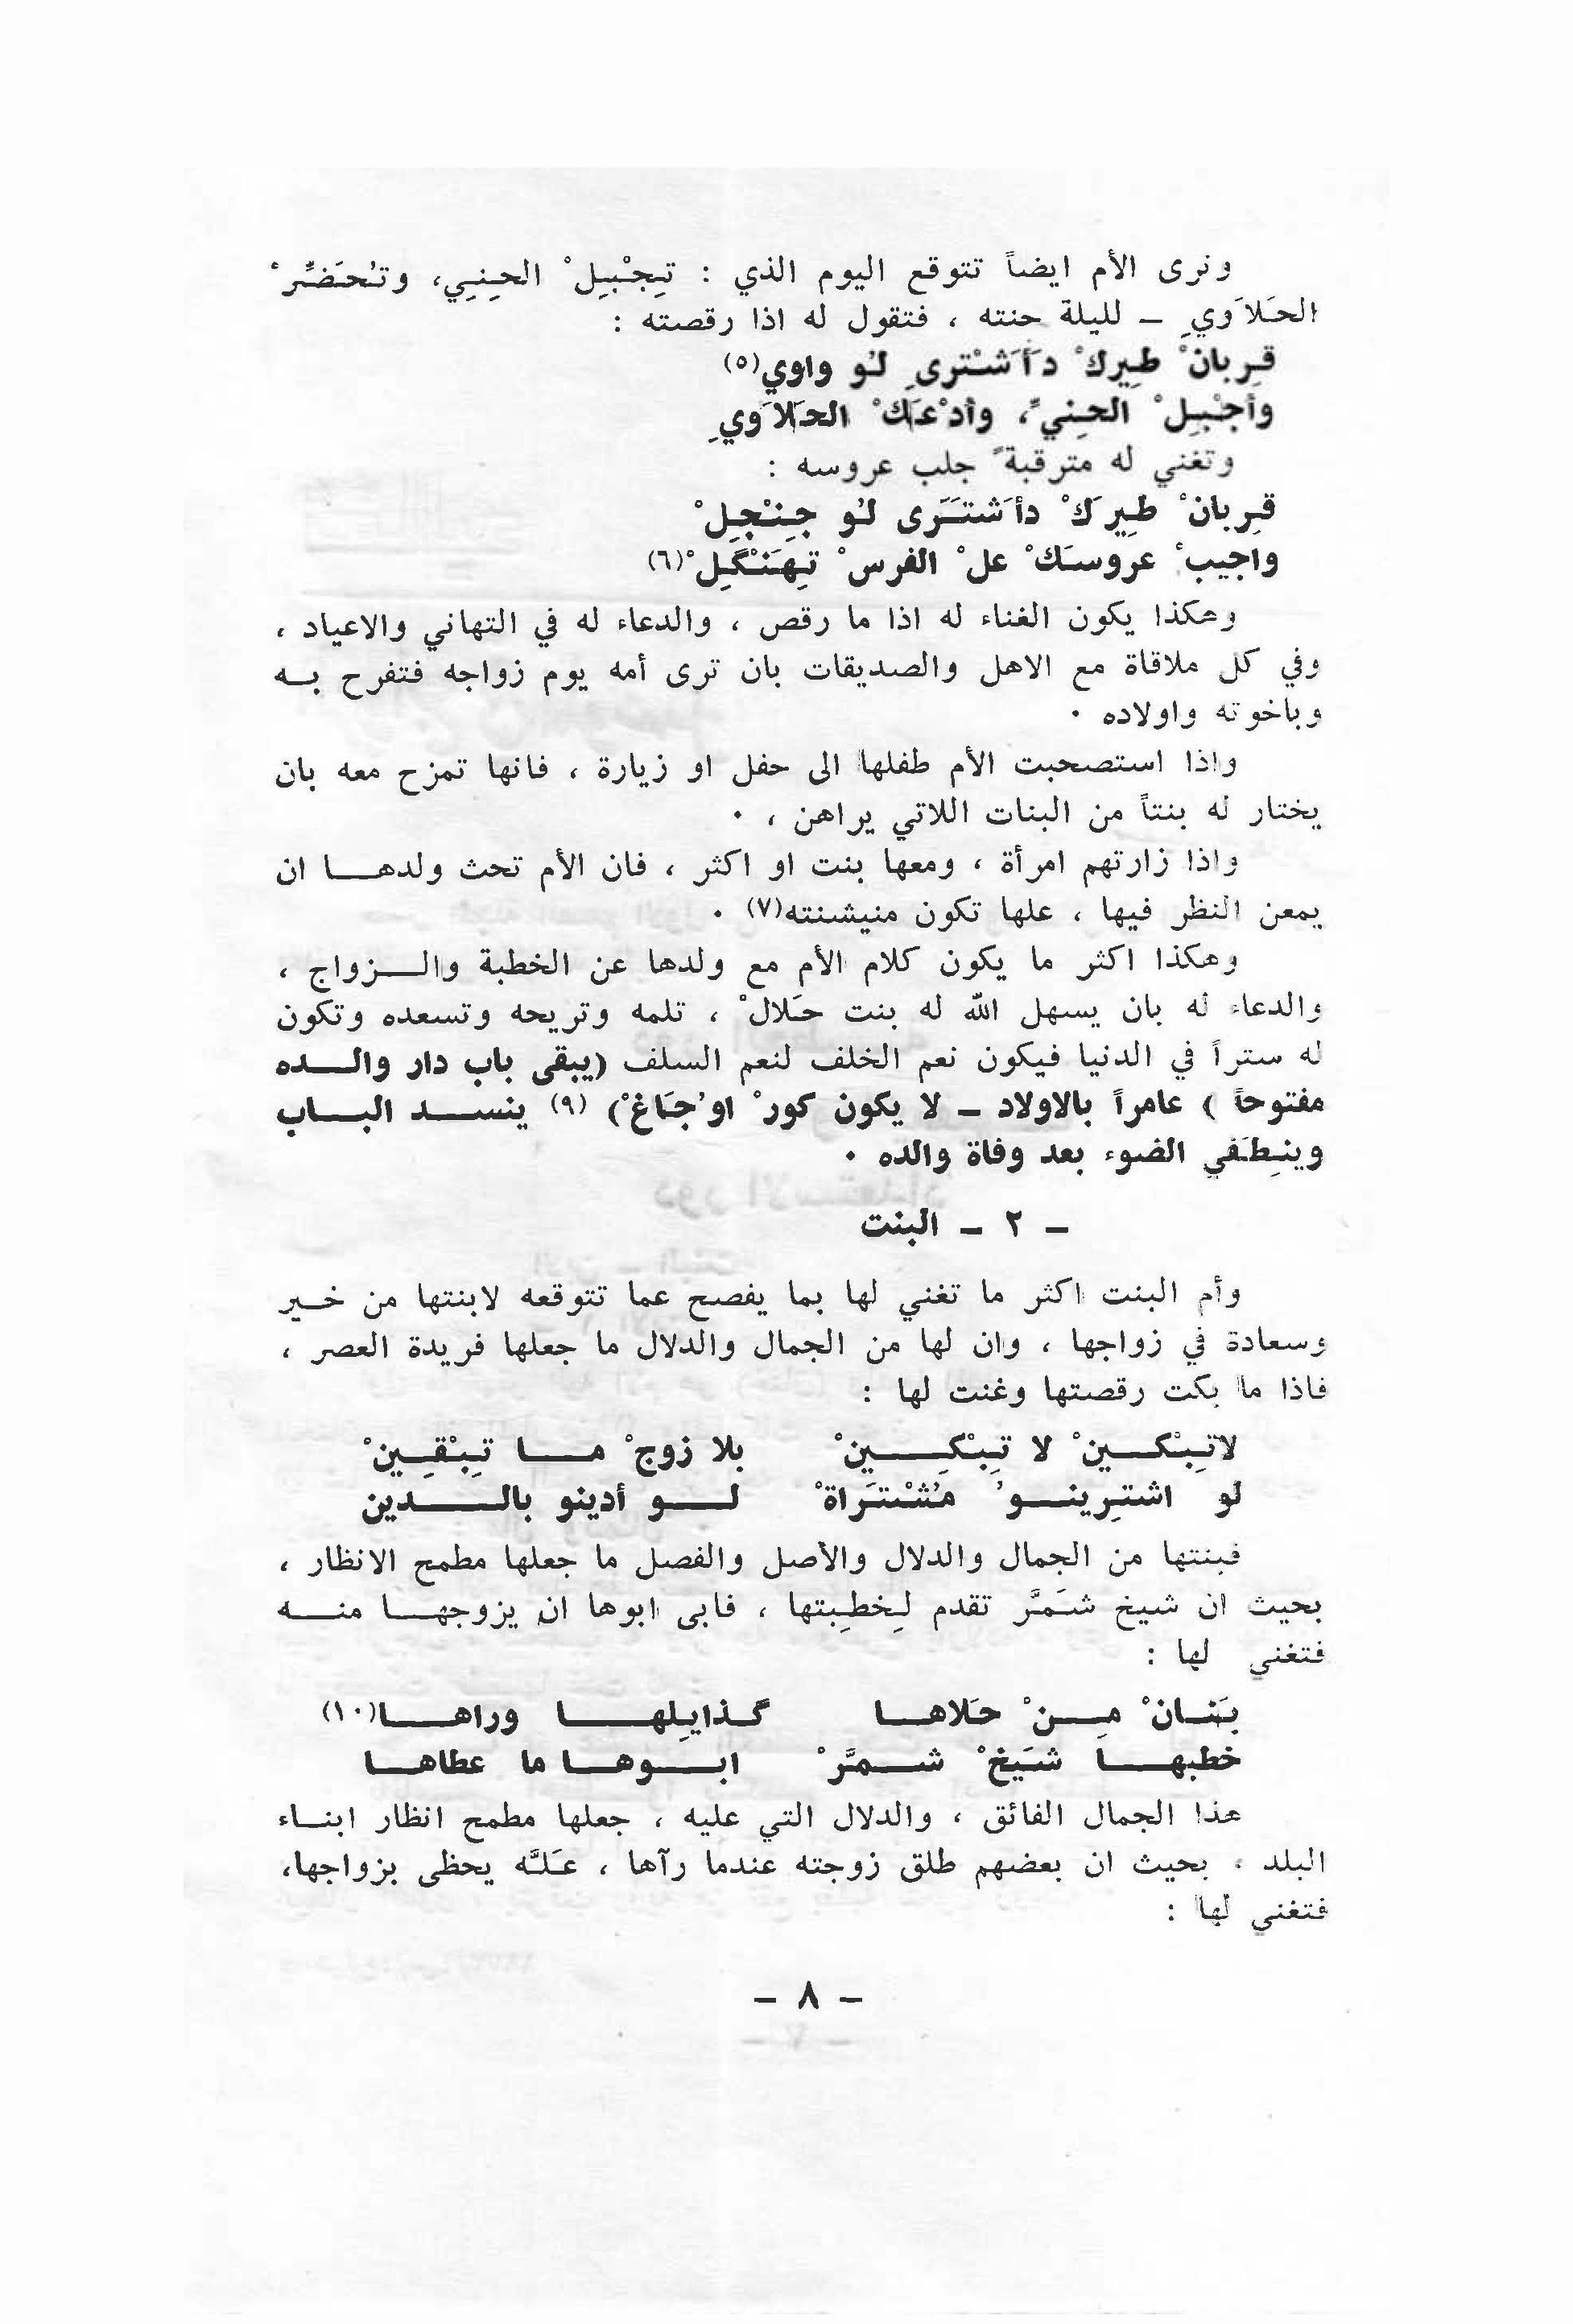 ونرى الأم ايضاً تتوقع اليوم الذي : تِجْبِلْ الحِنِي، وتُحَضِّرْ
الحَلاَوي ِ ــ لليلة حنته ، فتقول له اذا رقصته :
قِربانْ طِيرك ْ دَأَشْتری ِ لُو واوي(٥)
وأجْبِلْ الحِنيِّ، وأدْعَكْ الحَلاَوي ِ
وتغني له مترقبة ً جلب عروسه :
قِربانْ طِيرَكْ دأَشتَرَى لُو جِنْجِلْ
واجيبْ عروسَكْ علْ الفرسْ تِهَنْگِلْ(٦)
وهكذا يكون الغناء له اذا ما رقص ، والدعاء له في التهاني والاعياد ،
وفي كل ملاقاة مع الاهل والصديقات بان ترى أمه يوم زواجه فتفرح بـه
وباخوته واولاده ٠
واذا استصحبت الأم طفلها الى حفل او زيارة ، فانها تمزح معه بان
يختار له بنتاً من البنات اللاتي يراهن ، ٠
واذا زارتهم امرأة ، ومعها بنت او اكثر ، فان الأم تحث ولدهـا ان
يمعن النظر فيها ، علها تكون منيشنته(٧) ٠
وهكذا اكثر ما يكون كلام الأم مع ولدها عن الخطبة والـزواج ،
والدعاء له بان يسهل الله له بنت حَلالْ ، تلمه وتريحه وتسعده وتكون
له ستراً في الدنيا فيكون نعم الخلف لنعم السلف (يبقى باب دار والـده
مفتوحاً ) عامراً بالاولاد ــ لا يكون كورْ اوُجَاغْ) (٩) ينسـد البـاب
وينِطَفي الضوء بعد وفاة والده ٠
ــ ٢ ــ البنت
وأم البنت اكثر ما تغني لها بما يفصح عما تتوقعه لابنتها من خـير
وسعادة في زواجها ، وان لها من الجمال والدلال ما جعلها فريدة العصر ،
فاذا ما بكت رقصتها وغنت لها :
لاتِبْكـينْ لا تِبْكِـينْ بلا زوجْ مـا تِبْقِـينْ
لو اشتِرينـوُ مُشْتَراةْ لـو أدينو بالـدين
فبنتها من الجمال والدلال والأصل والفصل ما جعلها مطمح الانظار ،
بحيث ان شيخ شَمَّر تقدم لِخطِبتها ، فابى ابوها ان يزوجهـا منـه
فتغني لها :
بَنـانْ مِـنْ حَلاهـا گـذايِلهـا وراهـا(١٠)
خطبهـا شَيخْ شـمَّرْ ابـوهـا ما عطاهـا
هذا الجمال الفائق ، والدلال التي عليه ، جعلها مطمح انظار ابنـاء
البلد ، بحيث ان بعضهم طلق زوجته عندما رآها ، عَلَّه يحظى بزواجها،
فتغني لها :
ــ ٨ ــ